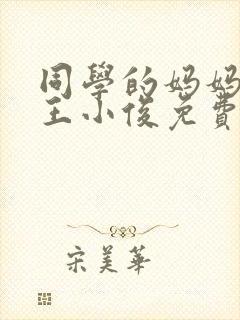 同學的媽媽
王小俊免費
宋美華